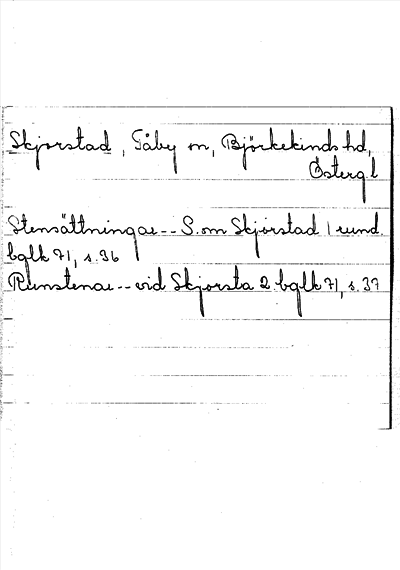 Skjorstad, Tåby sn, Björkekinds hd,
Östergl
Stensättningar -- S. om Skjorstad 1 rund.
bglk 71, s. 36
Runstenar -- vid Skjorsta 2 bglk 71, s. 37